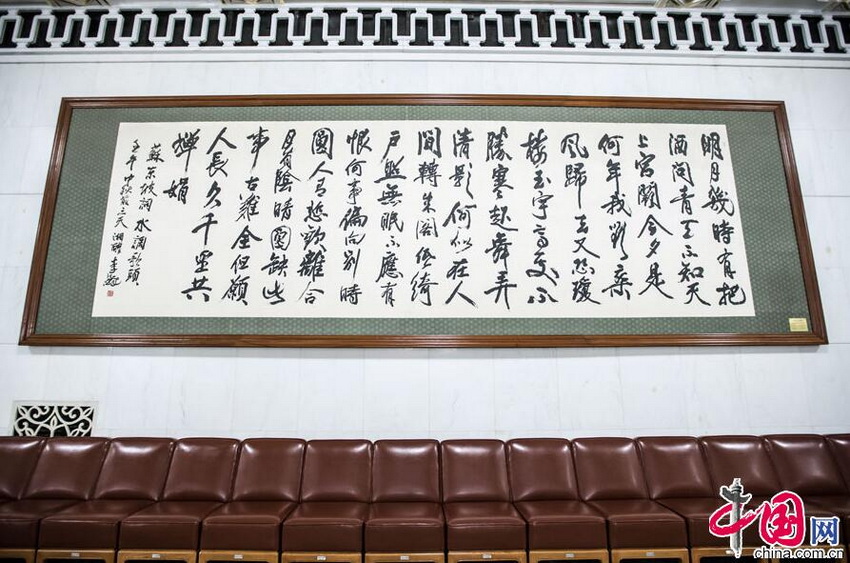 明月幾時有把
酒問青天不知天
上宮闕今夕是
何年我欲乘
風歸去又恐瓊
樓玉宇高處不
勝寒起舞弄
清影何似在人
間轉朱閣低綺
戶照無眠不應有
恨何事偏向別時
圓人有悲歡離合
月有陰晴圓缺此
事古難全但願
人長久千里共
嬋娟
蘇東坡詞水調歌頭
中秋三天湘醴李鐸
中国网
china.com.cn